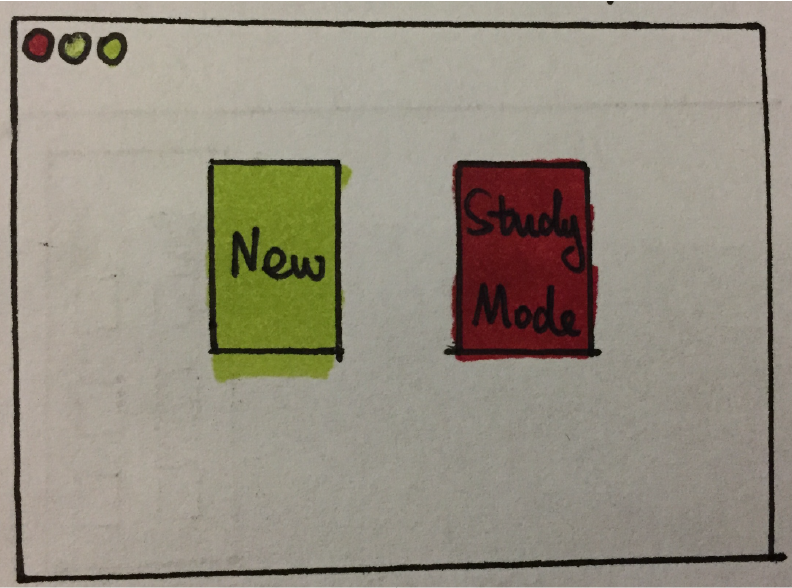 New
Study
Mode